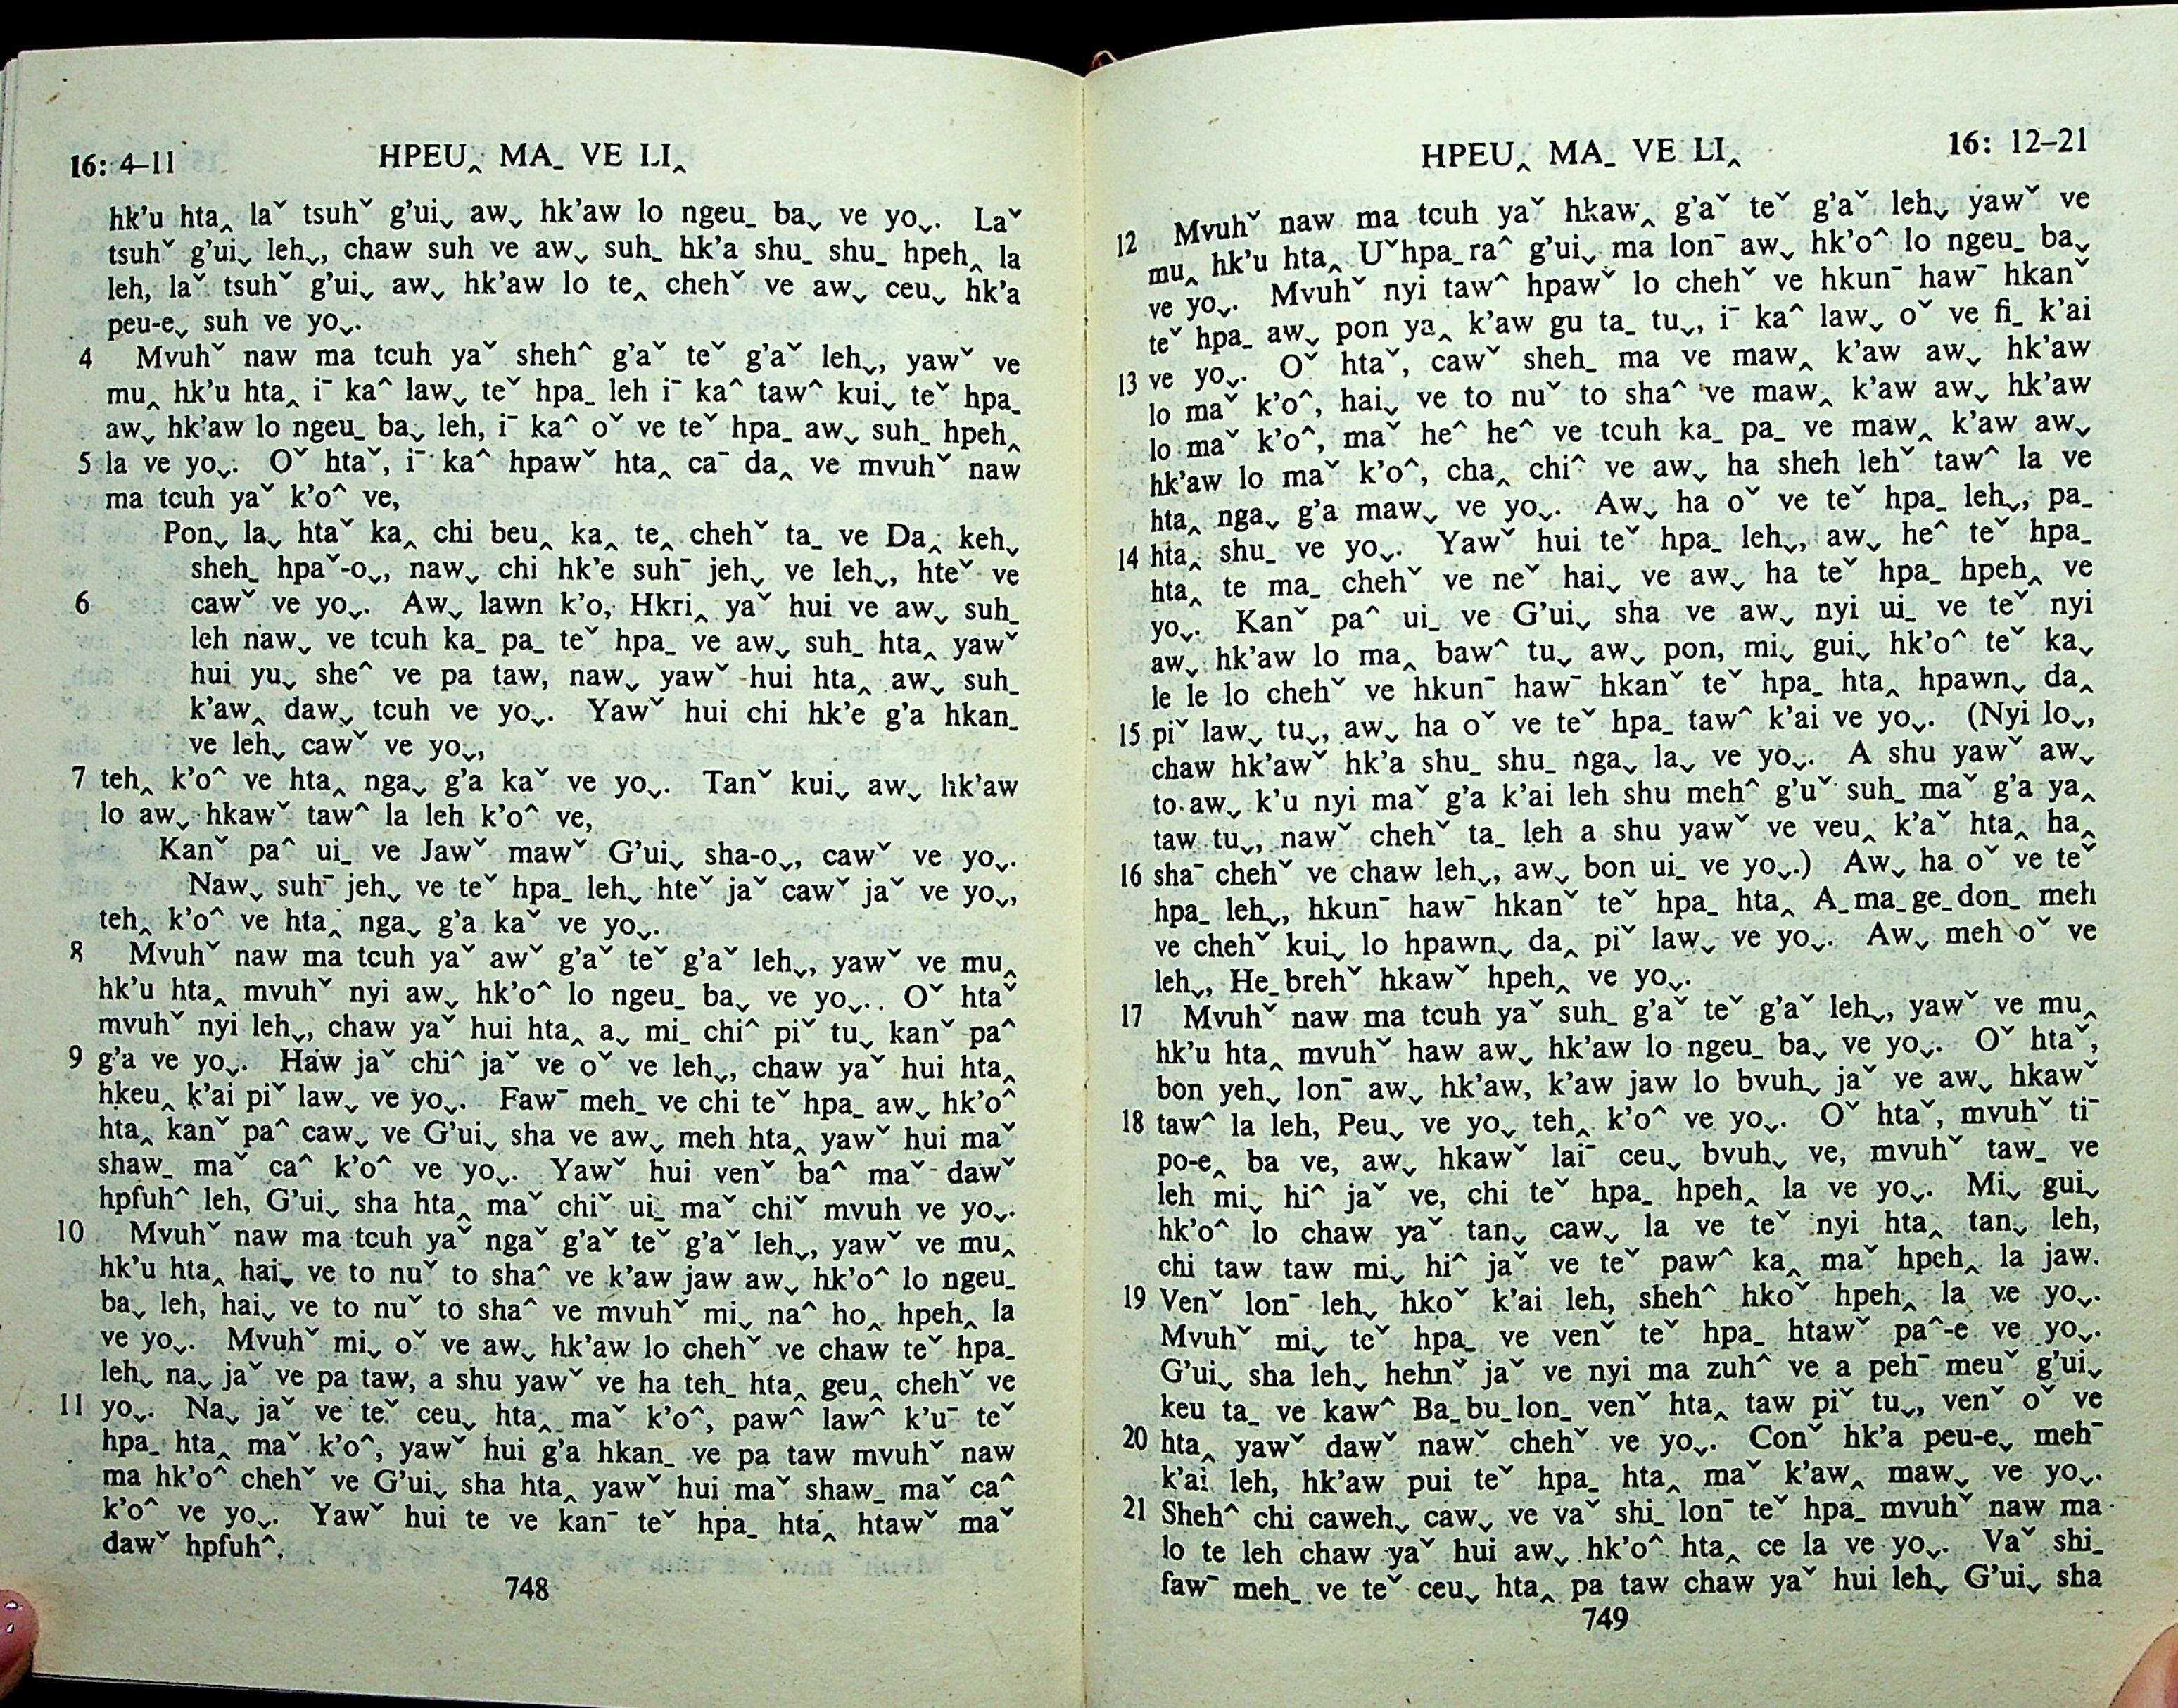 16: 4–11
HPEU‸ MA_ VE LI‸
hk'u hta‸ laˇ tsuhˇ g'ui⌄ aw⌄ hk'aw lo ngeu_ ba⌄ ve yo⌄. Laˇ
tsuhˇ g'ui⌄ leh⌄, chaw suh ve aw⌄ suh_ hk'a shu_ shu_ hpeh‸ la
leh, laˇ tsuhˇ g'ui⌄ aw⌄ hk'aw lo te‸ chehˇ ve aw⌄ ceu⌄ hk'a
peu-e⌄ suh ve yo⌄.
4 Mvuhˇ naw ma tcuh yaˇ sheh^ g'aˇ teˇ g'aˇ leh⌄, yawˇ ve
mu‸ hk'u hta‸ i¯ ka^ law⌄ teˇ hpa_ leh i¯ ka^ taw^ kui⌄ teˇ hpa_
aw⌄ hk'aw lo ngeu_ ba⌄ leh, i¯ ka^ oˇ ve teˇ hpa_ aw⌄ suh_ hpeh‸
5 la ve yo⌄. Oˇ htaˇ, i¯ ka^ hpawˇ hta‸ ca¯ da‸ ve mvuhˇ naw
ma tcuh yaˇ k'o^ ve,
Pon⌄ la⌄ htaˇ ka‸ chi beu‸ ka‸ te‸ chehˇ ta_ ve Da‸ keh⌄
sheh_ hpaˇ-o⌄, naw⌄ chi hk'e suh¯ jeh⌄ ve leh⌄, hteˇ ve
6 cawˇ ve yo⌄. Aw⌄ lawn k'o, Hkri‸ yaˇ hui ve aw⌄ suh_
leh naw⌄ ve tcuh ka_ pa_ teˇ hpa_ ve aw⌄ suh_ hta‸ yawˇ
hui yu⌄ she^ ve pa taw, naw⌄ yawˇ hui hta‸ aw⌄ suh_
k'aw‸ daw⌄ tcuh ve yo⌄. Yawˇ hui chi hk'e g'a hkan_
ve leh⌄ cawˇ ve yo⌄,
7 teh‸ k'o^ ve hta‸ nga⌄ g'a kaˇ ve yo⌄. Tanˇ kui⌄ aw⌄ hk'aw
lo aw⌄ hkawˇ taw^ la leh k'o^ ve,
Kanˇ pa^ ui_ ve Jawˇ mawˇ G'ui⌄ sha-o⌄, cawˇ ve yo⌄.
Naw⌄ suh¯ jeh⌄ ve teˇ hpa_ leh⌄ hteˇ jaˇ cawˇ jaˇ ve yo⌄,
teh‸ k'o^ ve hta‸ nga⌄ g'a kaˇ ve yo⌄.
8 Mvuhˇ naw ma tcuh yaˇ awˇ g'aˇ teˇ g'aˇ leh⌄, yawˇ ve mu‸
hk'u hta‸ mvuhˇ nyi aw⌄ hk'o^ lo ngeu_ ba⌄ ve yo⌄. Oˇ htaˇ
mvuhˇ nyi leh⌄, chaw yaˇ hui hta‸ a⌄ mi_ chi^ piˇ tu⌄ kanˇ pa^
9 g'a ve yo⌄. Haw jaˇ chi^ jaˇ ve oˇ ve leh⌄, chaw yaˇ hui hta‸
hkeu‸ k'ai piˇ law⌄ ve yo⌄. Faw¯ meh_ ve chi teˇ hpa_ aw⌄ hk'o^
hta‸ kanˇ pa^ caw⌄ ve G'ui⌄ sha ve aw⌄ meh hta‸ yawˇ hui maˇ
shaw_ maˇ ca^ k'o^ ve yo⌄. Yawˇ hui venˇ ba^ maˇ dawˇ
hpfuh^ leh, G'ui⌄ sha hta‸ maˇ chiˇ ui_ maˇ chiˇ mvuh ve yo⌄.
10 Mvuhˇ naw ma tcuh yaˇ ngaˇ g'aˇ teˇ g'aˇ leh⌄, yawˇ ve mu‸
hk'u hta‸ hai⌄ ve to nuˇ to sha^ ve k'aw jaw aw⌄ hk'o^ lo ngeu_
ba⌄ leh, hai⌄ ve to nuˇ to sha^ ve mvuhˇ mi⌄ na^ ho‸ hpeh‸ la
ve yo⌄. Mvuhˇ mi⌄ oˇ ve aw⌄ hk'aw lo chehˇ ve chaw teˇ hpa_
leh⌄ na⌄ jaˇ ve pa taw, a shu yawˇ ve ha teh_ hta‸ geu‸ chehˇ ve
11 yo⌄. Na⌄ jaˇ ve teˇ ceu⌄ hta‸ maˇ k'o^, paw^ law^ k'u¯ teˇ
hpa_ hta‸ maˇ k'o^, yawˇ hui g'a hkan_ ve pa taw mvuhˇ naw
ma hk'o^ chehˇ ve G'ui⌄ sha hta‸ yawˇ hui maˇ shaw_ maˇ ca^
k'o^ ve yo⌄. Yawˇ hui te ve kan¯ teˇ hpa_ hta‸ htawˇ maˇ
dawˇ hpfuh^.
748
HPEU‸ MA_ VE LI‸
16: 12–21
12 Mvuhˇ naw ma tcuh yaˇ hkaw‸ g'aˇ teˇ g'aˇ leh⌄ yawˇ ve
mu‸ hk'u hta‸ Uˇhpa_ra^ g'ui⌄ ma lon¯ aw⌄ hk'o^ lo ngeu_ ba⌄
ve yo⌄. Mvuhˇ nyi taw^ hpawˇ lo chehˇ ve hkun¯ haw¯ hkanˇ
teˇ hpa_ aw⌄ pon ya‸ k'aw gu ta_ tu⌄, i¯ ka^ law⌄ oˇ ve fi_ k'ai
13 ve yo⌄. Oˇ htaˇ, cawˇ sheh_ ma ve maw‸ k'aw aw⌄ hk'aw
lo maˇ k'o^, hai⌄ ve to nuˇ to sha^ ve maw‸ k'aw aw⌄ hk'aw
lo maˇ k'o^, maˇ he^ he^ ve tcuh ka_ pa_ ve maw‸ k'aw aw⌄
hk'aw lo maˇ k'o^, cha‸ chi^ ve aw⌄ ha sheh lehˇ taw^ la ve
hta‸ nga⌄ g'a maw⌄ ve yo⌄. Aw⌄ ha oˇ ve teˇ hpa_ leh⌄, pa_
14 hta‸ shu_ ve yo⌄. Yawˇ hui teˇ hpa_ leh⌄, aw⌄ he^ teˇ hpa_
hta‸ te ma_ chehˇ ve neˇ hai⌄ ve aw⌄ ha teˇ hpa_ hpeh‸ ve
yo⌄. Kanˇ pa^ ui_ ve G'ui⌄ sha ve aw⌄ nyi ui_ ve teˇ nyi
aw⌄ hk'aw lo ma‸ baw^ tu⌄ aw⌄ pon, mi⌄ gui⌄ hk'o^ teˇ ka⌄
le le lo chehˇ ve hkun¯ haw¯ hkanˇ teˇ hpa_ hta‸ hpawn⌄ da‸
15 piˇ law⌄ tu⌄, aw⌄ ha oˇ ve teˇ hpa_ taw^ k'ai ve yo⌄. (Nyi lo⌄,
chaw hk'awˇ hk'a shu_ shu_ nga⌄ la⌄ ve yo⌄. A shu yawˇ aw⌄
to aw⌄ k'u nyi maˇ g'a k'ai leh shu meh^ g'uˇ suh_ maˇ g'a ya‸
taw tu⌄, nawˇ chehˇ ta_ leh a shu yawˇ ve veu‸ k'aˇ hta‸ ha‸
16 sha¯ chehˇ ve chaw leh⌄, aw⌄ bon ui_ ve yo⌄.) Aw⌄ ha oˇ ve teˇ
hpa_ leh⌄, hkun¯ haw¯ hkanˇ teˇ hpa_ hta‸ A_ma_ge_don_ meh
ve chehˇ kui⌄ lo hpawn⌄ da‸ piˇ law⌄ ve yo⌄. Aw⌄ meh oˇ ve
leh⌄, He_brehˇ hkawˇ hpeh‸ ve yo⌄.
17 Mvuhˇ naw ma tcuh yaˇ suh_ g'aˇ teˇ g'aˇ leh⌄, yawˇ ve mu‸
hk'u hta‸ mvuhˇ haw aw⌄ hk'aw lo ngeu_ ba⌄ ve yo⌄. Oˇ htaˇ,
bon yeh⌄ lon¯ aw⌄ hk'aw, k'aw jaw lo bvuh⌄ jaˇ ve aw⌄ hkawˇ
18 taw^ la leh, Peu⌄ ve yo⌄ teh‸ k'o^ ve yo⌄. Oˇ htaˇ, mvuhˇ ti¯
po-e‸ ba ve, aw⌄ hkawˇ lai¯ ceu⌄ bvuh⌄ ve, mvuhˇ taw_ ve
leh mi⌄ hi^ jaˇ ve, chi teˇ hpa_ hpeh‸ la ve yo⌄. Mi⌄ gui⌄
hk'o^ lo chaw yaˇ tan⌄ caw⌄ la ve teˇ nyi hta‸ tan⌄ leh,
chi taw taw mi⌄ hi^ jaˇ ve teˇ paw^ ka‸ maˇ hpeh‸ la jaw.
19 Venˇ lon¯ leh⌄ hkoˇ k'ai leh, sheh^ hkoˇ hpeh‸ la ve yo⌄.
Mvuhˇ mi⌄ teˇ hpa_ ve venˇ teˇ hpa_ htawˇ pa^-e ve yo⌄.
G'ui⌄ sha leh⌄ hehnˇ jaˇ ve nyi ma zuh^ ve a peh¯ meuˇ g'ui⌄
keu ta_ ve kaw^ Ba_bu_lon_ venˇ hta‸ taw piˇ tu⌄, venˇ oˇ ve
20 hta‸ yawˇ dawˇ nawˇ chehˇ ve yo⌄. Conˇ hk'a peu-e⌄ meh¯
k'ai leh, hk'aw pui teˇ hpa_ hta‸ maˇ k'aw‸ maw⌄ ve yo⌄.
21 Sheh^ chi caweh⌄ caw⌄ ve vaˇ shi_ lon¯ teˇ hpa_ mvuhˇ naw ma
lo te leh chaw yaˇ hui aw⌄ hk'o^ hta‸ ce la ve yo⌄. Vaˇ shi_
faw¯ meh_ ve teˇ ceu⌄ hta‸ pa taw chaw yaˇ hui leh⌄ G'ui⌄ sha
749